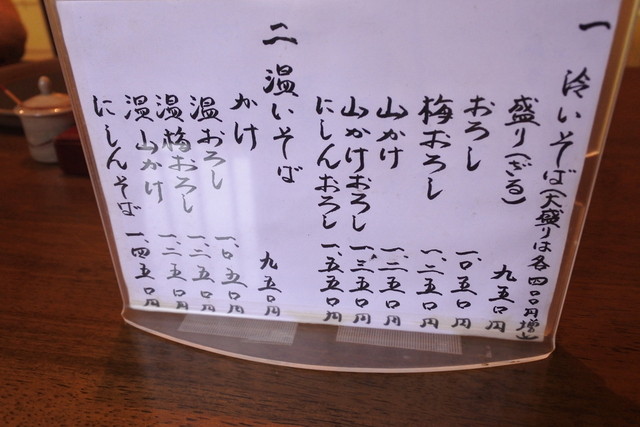 一 冷いそば(大盛りは各四〇〇円増し)
盛り(ざる) 九五〇円
おろし 一、〇五〇円
梅おろし 一、二五〇円
山かけ 一、二五〇円
山かけおろし 一、三五〇円
にしんおろし 一、五五〇円
二 温いそば
かけ 九五〇円
温おろし 一、〇五〇円
温梅おろし 一、二五〇円
温山かけ 一、二五〇円
にしんそば 一、四五〇円